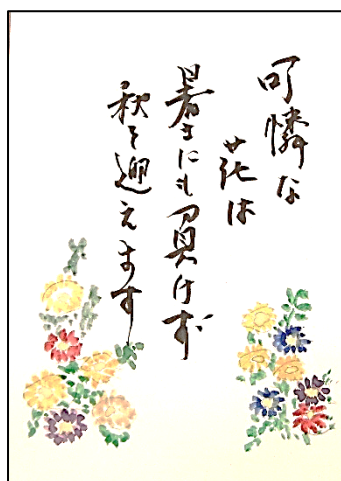 可憐な
花は
暑さにも負けず
秋を迎えます